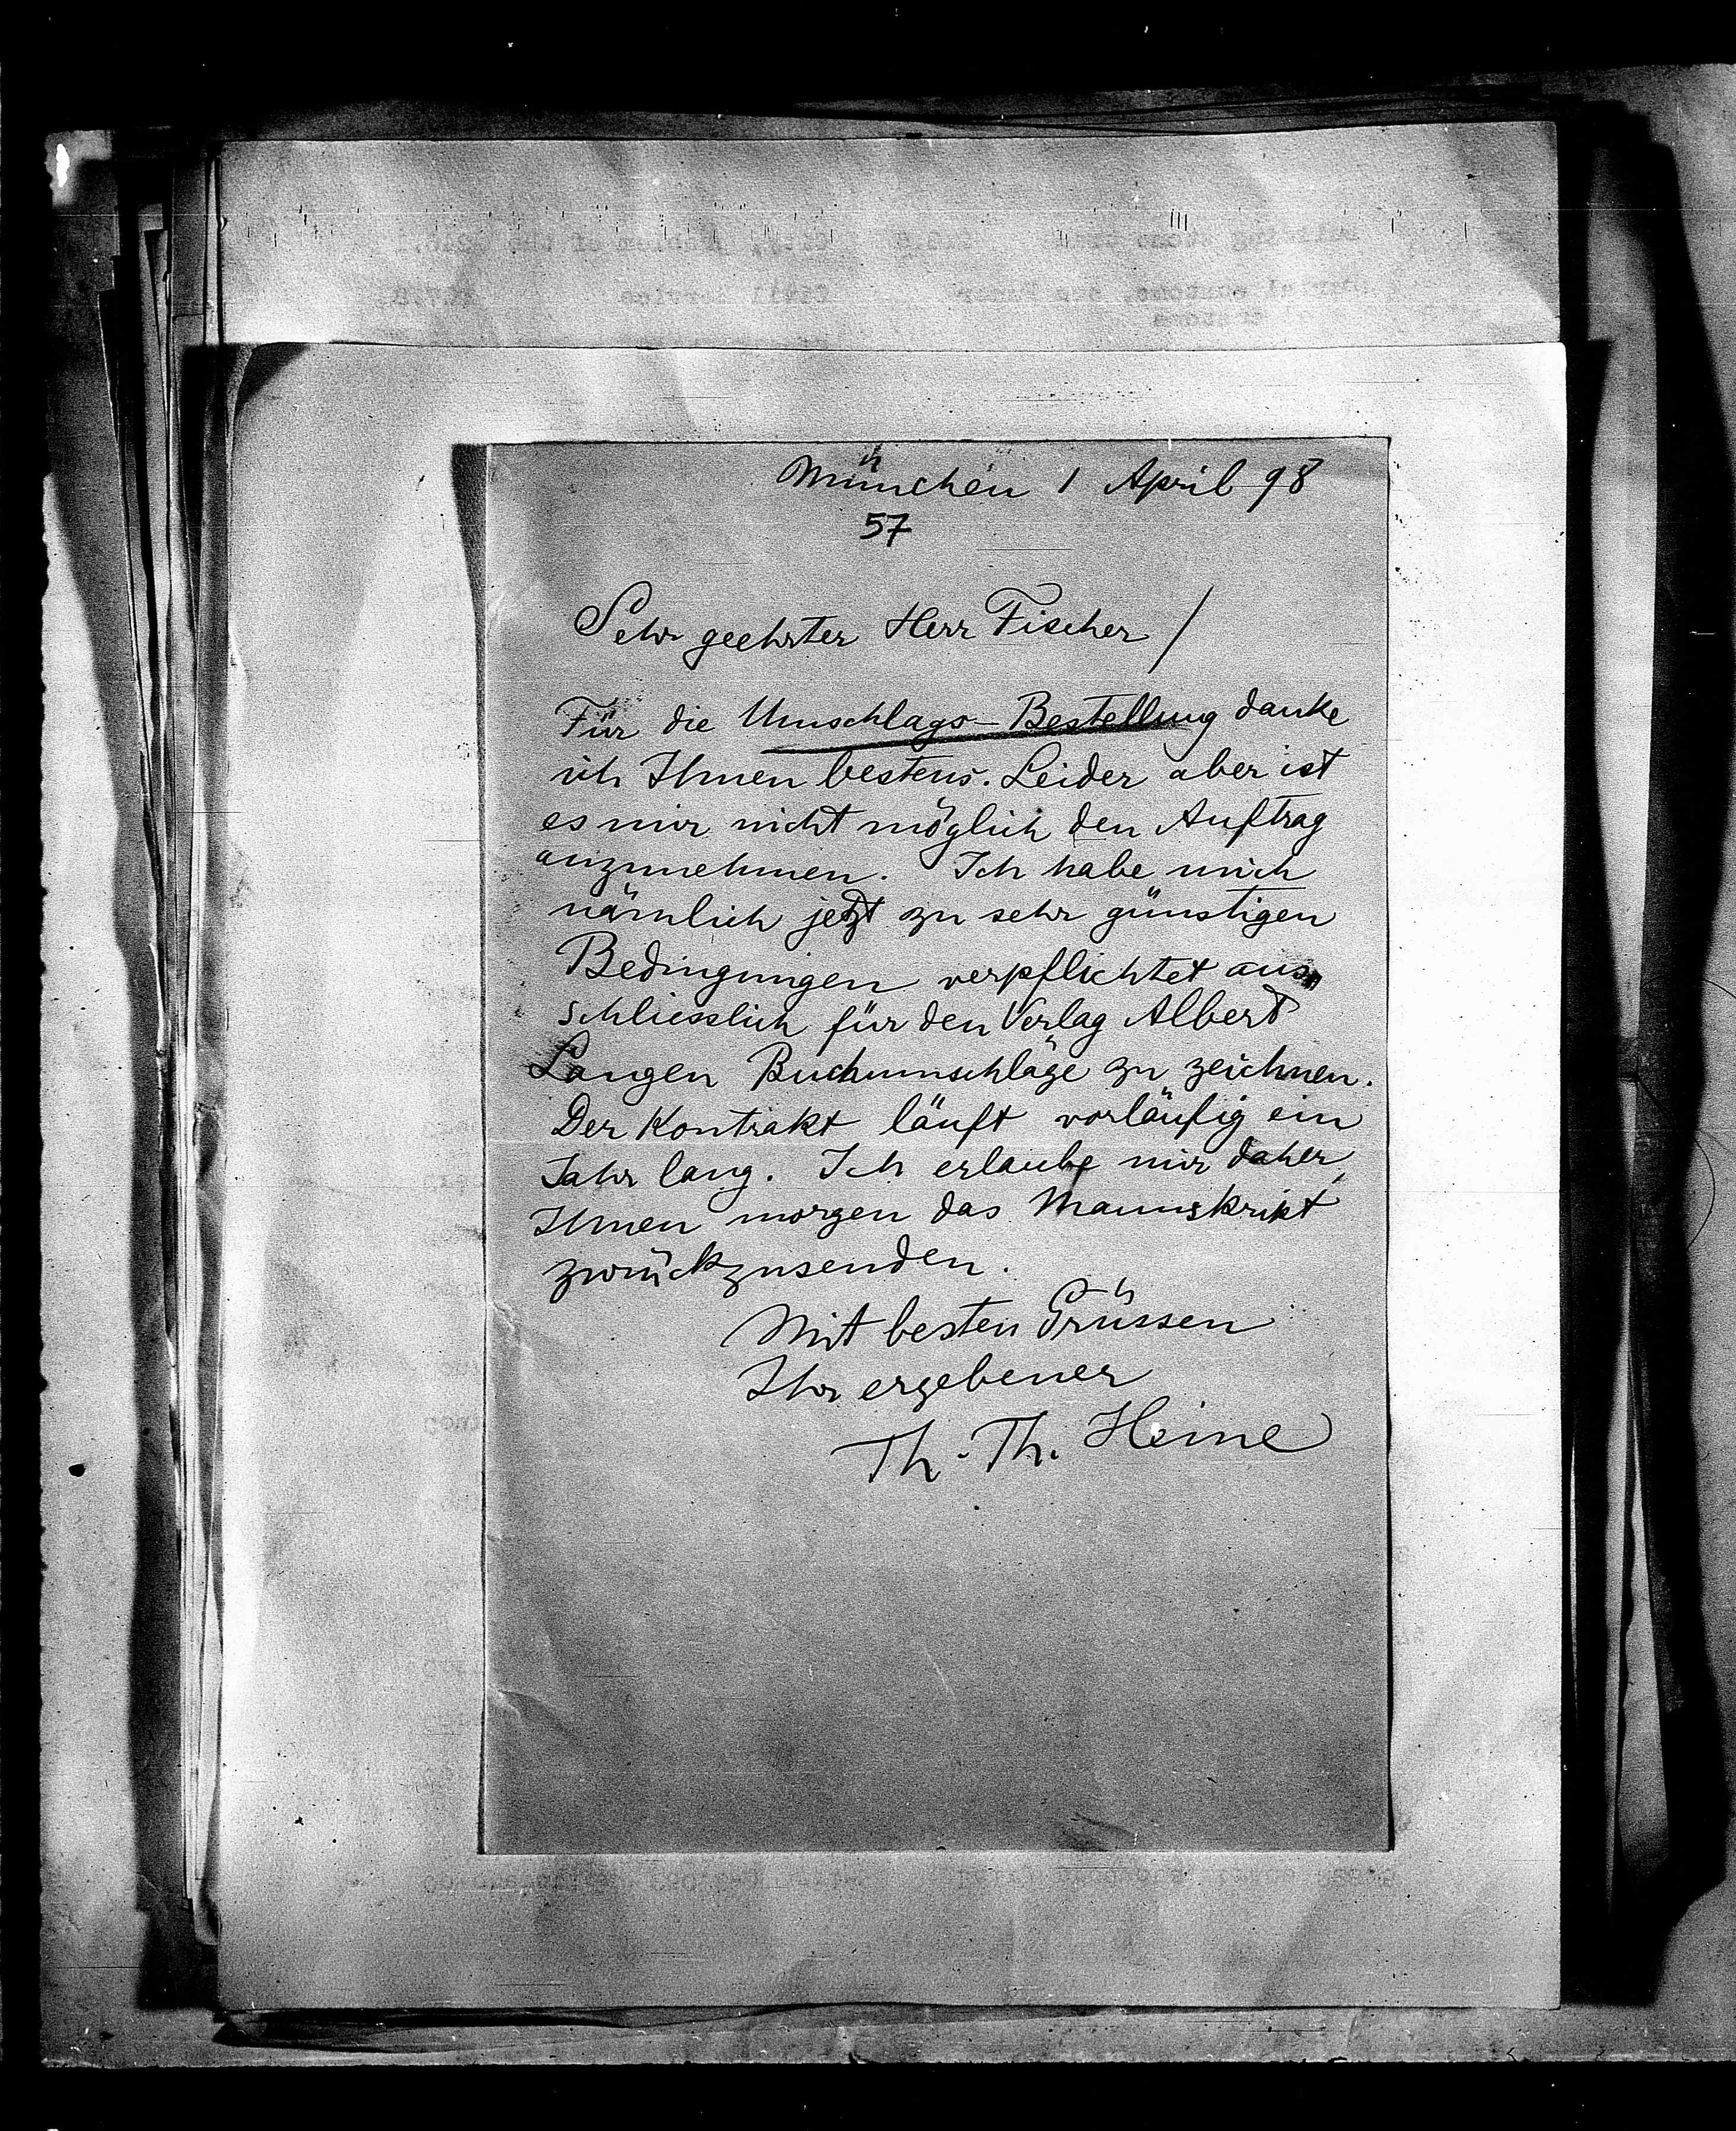 München 1 April 98
57
Sehr geehrter Herr Fischer /
Für die Umschlags-Bestellung danke
ich Ihnen bestens. Leider aber ist
es mir nicht möglich den Auftrag
anzunehmen. Ich habe mich
nämlich jetzt zu sehr günstigen
Bedingungen verpflichtet aus-
schliesslich für den Verlag Albert
Langen Buchumschläge zu zeichnen.
Der Kontrakt läuft vorläufig ein
Jahr lang. Ich erlaube mir daher,
Ihnen morgen das Manuskript
zurückzusenden.
Mit besten Grüssen
Ihr ergebener
Th. Th. Heine